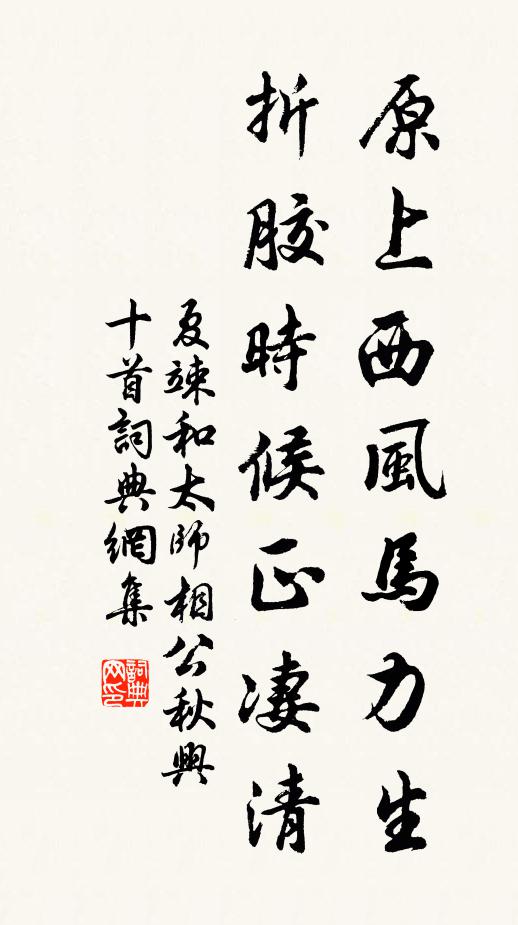 原上西風馬力生
折膠時候正凄清
夏竦和太師相公秋興
十首詞典網集
詞典网印